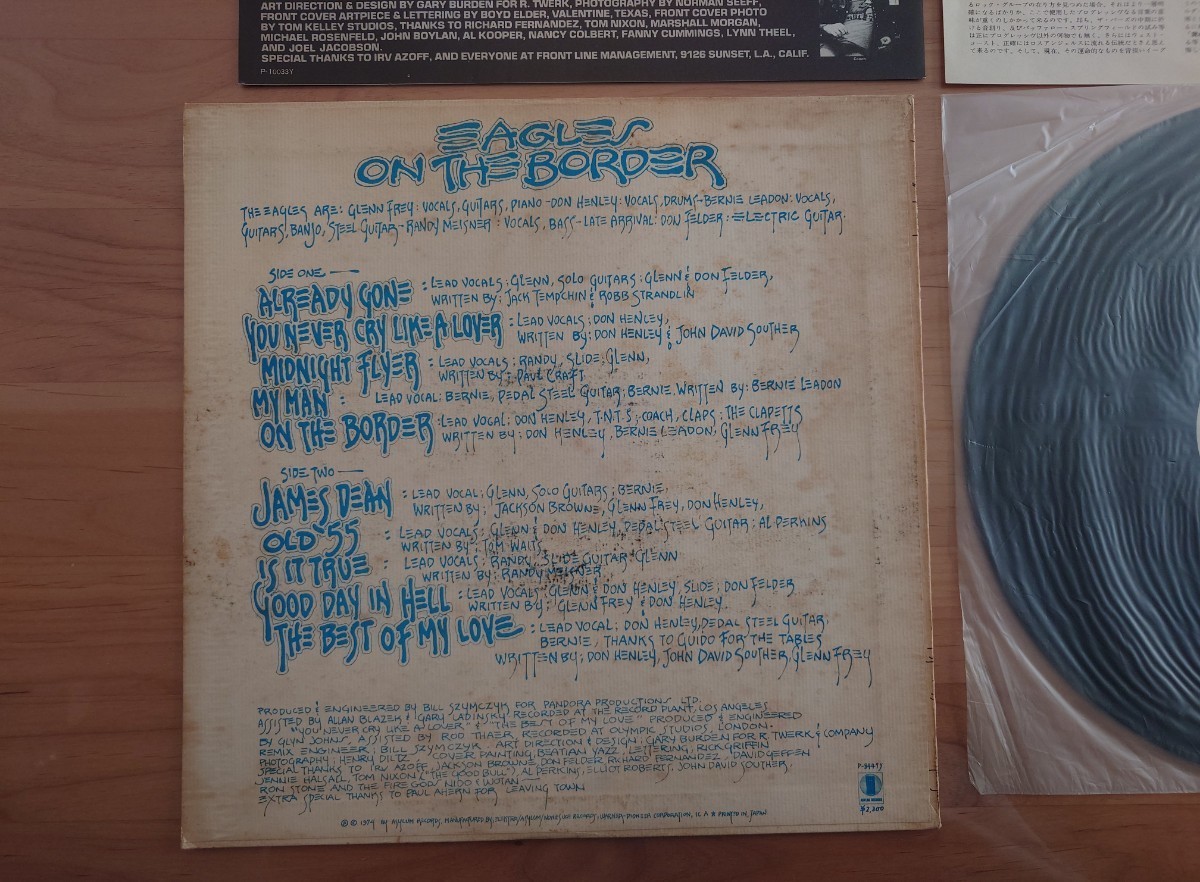 ART DIRECTION & DESIGN BY GARY BURDEN FOR R. TWERK, PHOTOGRAPHY BY NORMAN SEEFF,
FRONT COVER ARTPIECE & LETTERING BY BOYD ELDER, VALENTINE, TEXAS, FRONT COVER PHOTO
BY TOM KELLEY STUDIOS, THANKS TO RICHARD FERNANDEZ, TOM NIXON, MARSHALL MORGAN,
MICHAEL ROSENFELD, JOHN BOYLAN, AL KOOPER, NANCY COLBERT, FANNY CUMMINGS, LYNN THEEL,
AND JOEL JACOBSON.
SPECIAL THANKS TO IRV AZOFF, AND EVERYONE AT FRONT LINE MANAGEMENT, 9126 SUNSET, L.A., CALIF.
P-10033Y
EAGLES
ON THE BORDER
THE EAGLES ARE: GLENN FREY: VOCALS, GUITARS, PIANO-DON HENLEY: VOCALS, DRUMS-BERNIE LEADON: VOCALS,
GUITARS, BANJO, STEEL GUITAR-RANDY MEISNER: VOCALS, BASS-LATE ARRIVAL: DON FELDER: ELECTRIC GUITAR.
SIDE ONE
ALREADY GONE : LEAD VOCALS: GLENN, SOLO GUITARS: GLENN & DON FELDER,
WRITTEN BY: JACK TEMPCHIN & ROBB STRANDLIN
YOU NEVER CRY LIKE A LOVER : LEAD VOCALS: DON HENLEY,
WRITTEN BY: DON HENLEY & JOHN DAVID SOUTHER
MIDNIGHT FLYER : LEAD VOCALS: RANDY, SLIDE: GLENN,
WRITTEN BY: PAUL CRAFT
MY MAN : LEAD VOCAL: BERNIE, PEDAL STEEL GUITAR: BERNIE. WRITTEN BY: BERNIE LEADON
ON THE BORDER : LEAD VOCAL: DON HENLEY, T.N.T.S: COACH, CLAPS: THE CLAPETTS
WRITTEN BY: DON HENLEY, BERNIE LEADON, GLENN FREY
SIDE TWO
JAMES DEAN : LEAD VOCAL: GLENN, SOLO GUITARS: BERNIE,
WRITTEN BY: JACKSON BROWNE, GLENN FREY, DON HENLEY,
OLD '55 : LEAD VOCALS: GLENN & DON HENLEY, PEDAL STEEL GUITAR: AL PERKINS
WRITTEN BY: TOM WAITS
IS IT TRUE : LEAD VOCALS: RANDY, SLIDE GUITAR: GLENN
WRITTEN BY: RANDY MEISNER
GOOD DAY IN HELL : LEAD VOCALS: GLENN & DON HENLEY, SLIDE: DON FELDER
WRITTEN BY: GLENN FREY & DON HENLEY.
THE BEST OF MY LOVE : LEAD VOCAL: DON HENLEY, PEDAL STEEL GUITAR:
BERNIE, THANKS TO GUIDO FOR THE TABLES
WRITTEN BY: DON HENLEY, JOHN DAVID SOUTHER, GLENN FREY
PRODUCED & ENGINEERED BY BILL SZYMCZYK FOR PANDORA PRODUCTIONS LTD.
ASSISTED BY ALLAN BLAZEK & GARY LADINSKY RECORDED AT THE RECORD PLANT, LOS ANGELES
"YOU NEVER CRY LIKE A LOVER" & "THE BEST OF MY LOVE" PRODUCED & ENGINEERED
BY GLYN JOHNS. ASSISTED BY ROD THAER RECORDED AT OLYMPIC STUDIOS, LONDON.
REMIX ENGINEER: BILL SZYMCZYK. ART DIRECTION & DESIGN: GARY BURDEN FOR R. TWERK & COMPANY
PHOTOGRAPHY: HENRY DILTZ. COVER PAINTING: BEATIAN YAZZ. LETTERING: RICK GRIFFIN
SPECIAL THANKS TO IRV AZOFF, JACKSON BROWNE, DON FELDER, RICHARD FERNANDEZ, DAVID GEFFEN
JENNIE HALSALL, TOM NIXON ("THE GOOD BULL"), AL PERKINS, ELLIOT ROBERTS, JOHN DAVID SOUTHER,
RON STONE AND THE FIRE GOD/NIDO & WOTAN
EXTRA SPECIAL THANKS TO PAUL AHERN FOR LEAVING TOWN
ASYLUM RECORDS
¥2,200
℗ © 1974 BY ASYLUM RECORDS, MANUFACTURED BY WARNER-PIONEER CORPORATION, PRINTED IN JAPAN